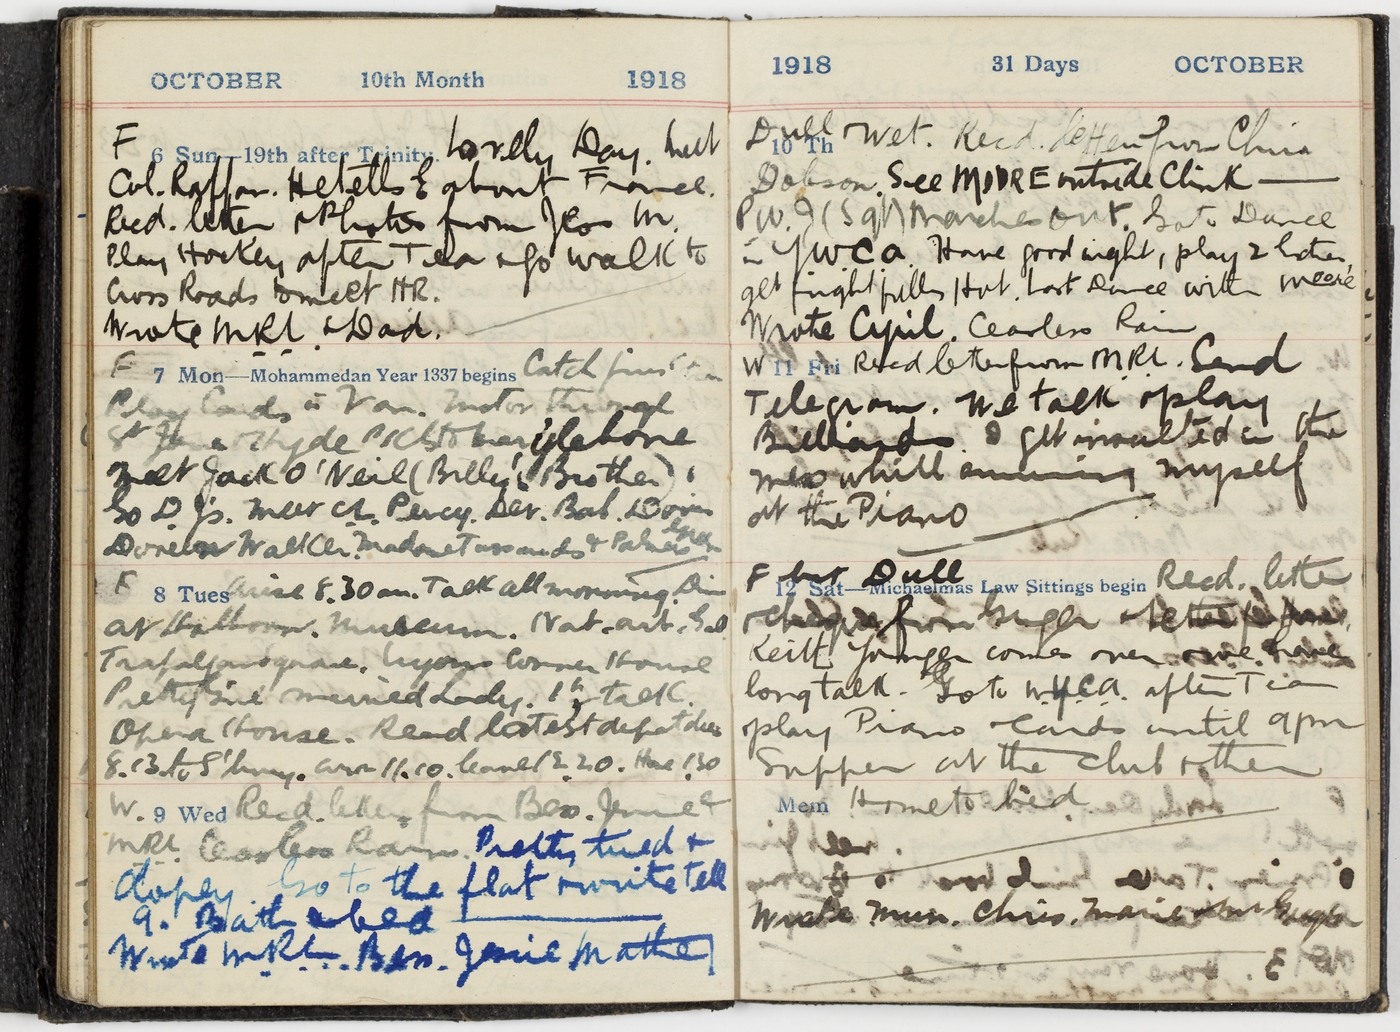 OCTOBER 10th Month 1918
F
6 Sun—19th after Trinity. Lovelly Day. Meet
Col. Raffan. He tells E about France.
Recd. letter & Photos from Jess M.
Play Hockey after Tea & go walk to
Cross Roads to meet HR.
Wrote MRt. & Dad.
F 7 Mon—Mohammedan Year 1337 begins Catch first
Play Cards in Van. Motor through
Hyde PK to
meet Jack O'Neil (Billy's Brother)
Go D J's. Meet Percy. Bab. Doris
Doreen Walker. Madame Tussauds &
F 8 Tues Arise 8.30 am. Talk all morning. Din
at Holborn. Museum. Nat. art. Gal
Trafalgar Square. Lyons Corner House
Pretty Girl married Lady. 1 hr talk.
Opera House. Read latest
8.13 to arr 11.10. leave 12.20. Home 1.30
W. 9 Wed Recd. letters from Bess. Jennie &
MRt. Ceasless Rain. Pretty tired &
dopey Go to the flat & write tell
9. Bath & bed
Wrote MRt. Bess. Jessie Mather
1918 31 Days OCTOBER
Dull & Wet. Recd. letter from China
10 Th
Dobson. See MOORE outside Clink —
P.W.J (Sgt) marches out. Go to Dance
in YWCA. Have good night, play 2 later,
get frightfully Hot. Last Dance with
Wrote Cyril. Ceasless Rain
W 11 Fri Recd letter from MRt. Send
Telegram. We talk & play
Billiards. I get insulted in the
mess whilst amusing myself
at the Piano
F but Dull
12 Sat—Michaelmas Law Sittings begin Recd. letter
& from &
Keith Younger comes over & we have
long talk. Go to YMCA. after Tea
play Piano & Cards until 9pm
Supper at the Club & then
Mem Home to bed.
Wrote Mum. Chris. Marie &